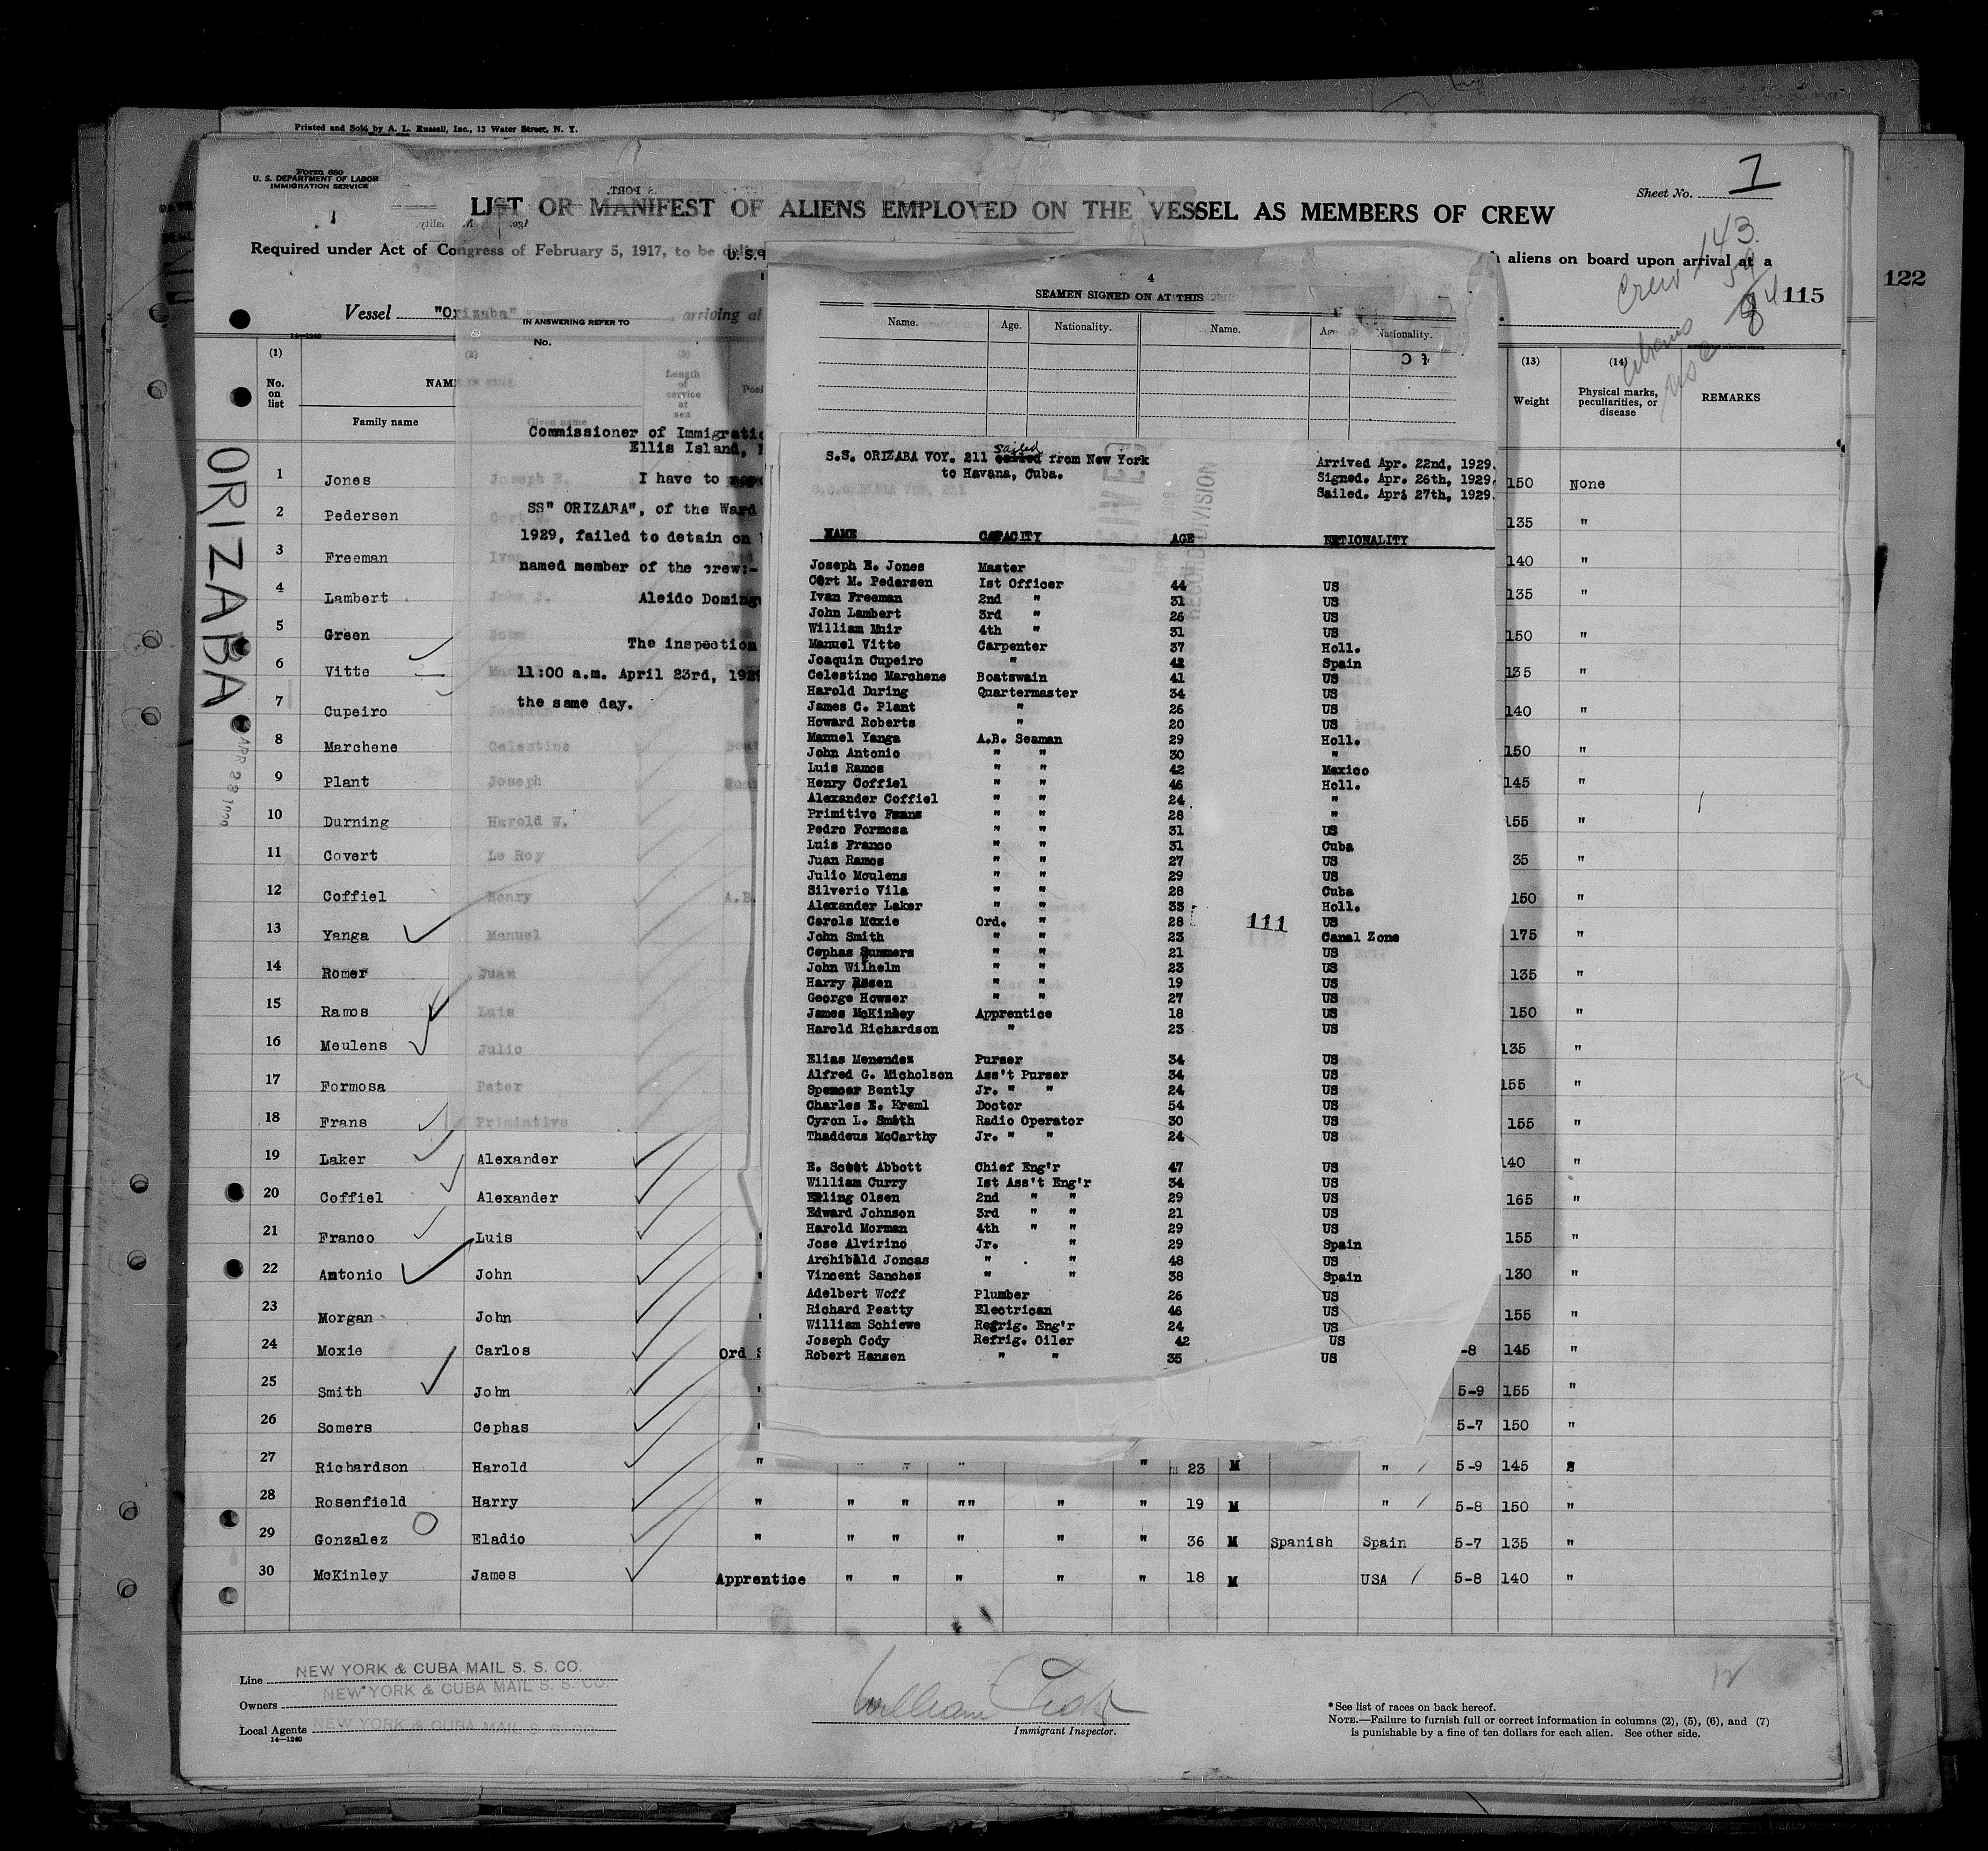 Printed and Sold by A. L. Russell, Inc., 13 Water Street, N. Y.
Form 680
U. S. DEPARTMENT OF LABOR
IMMIGRATION SERVICE
Sheet No. 1
LIST OR MANIFEST OF ALIENS EMPLOYED ON THE VESSEL AS MEMBERS OF CREW
Required under Act of Congress of February 5, 1917, to be
aliens on board upon arrival at a
Crew 143
115
122
Vessel "Orizaba" arriving at
IN ANSWERING REFER TO
No.
14—1240
(1) No. on list
(2) NAME IN FULL
Family name
Given name
(3) Length of service at sea
(13) Weight
(14) Physical marks, peculiarities, or disease
REMARKS
ORIZABA
Commissioner of Immigratio
Ellis Island,
I have to
SS" ORIZABA", of the Ward
1929, failed to detain on
named member of the crew:-
Aleido Doming
The inspection
11:00 a.m. April 23rd, 192
the same day.
1 Jones Joseph E. 150 None
2 Pedersen Cort M. 135 "
3 Freeman Ivan 140 "
4 Lambert John J. 135 "
5 Green John 150 "
6 Vitte 135 "
7 Cupeiro Joaquin 140 "
8 Marchene Celestino 150 "
9 Plant Joseph 145 "
10 Durning Harold W. 155 "
11 Covert Le Roy 35 "
12 Coffiel Henry A.B. 150 "
13 Yanga Manuel 175 "
14 Romer Juan 135 "
15 Ramos Luis 150 "
16 Meulens Julio 135 "
17 Formosa Peter 155 "
18 Frans Primintivo 155 "
19 Laker Alexander 140 "
20 Coffiel Alexander 165 "
21 Franco Luis 155 "
22 Antonio John 130 "
23 Morgan John 155 "
24 Moxie Carlos Ord -8 145 "
25 Smith John 5-9 155 "
26 Somers Cephas 5-7 150 "
27 Richardson Harold " " " " " 23 M " 5-9 145
28 Rosenfield Harry " " " "" " " 19 M " 5-8 150 "
29 Gonzalez Eladio " " " " " " 36 M Spanish Spain 5-7 135 "
30 McKinley James Apprentice " " " " " 18 M USA 5-8 140 "
4
SEAMEN SIGNED ON AT THIS
Name. Age. Nationality. Name. Age Nationality.
S.S. ORIZABA VOY. 211 sailed from New York
to Havana, Cuba.
Arrived Apr. 22nd, 1929.
Signed. Apr. 26th, 1929.
Sailed. Apr. 27th, 1929.
RECORD DIVISION
NAME CAPACITY AGE NATIONALITY
Joseph E. Jones Master
Cort M. Pedersen Ist Officer 44 US
Ivan Freeman 2nd " 31 US
John Lambert 3rd " 26 US
William Muir 4th " 31 US
Manuel Vitte Carpenter 37 Holl.
Joaquin Cupeiro " 42 Spain
Celestino Marchene Boatswain 41 US
Harold During Quartermaster 34 US
James C. Plant " 26 US
Howard Roberts " 20 US
Manuel Yanga A.B. Seaman 29 Holl.
John Antonio " " 30 "
Luis Ramos " " 42 Mexico
Henry Coffiel " " 46 Holl.
Alexander Coffiel " " 24 "
Primitivo Frans " " 28 "
Pedro Formosa " " 31 US
Luis Franco " " 31 Cuba
Juan Ramos " " 27 US
Julio Moulens " " 29 US
Silverio Vila " " 28 Cuba
Alexander Laker " " 33 Holl.
Carols Moxie Ord. " 28 US
111
John Smith " " 23 Canal Zone
Cephas Summers " " 21 US
John Wilhelm " " 23 US
Harry Rosen " " 19 US
George Howser " " 27 US
James McKinley Apprentice 18 US
Harold Richardson " 23 US
Elias Menendez Purser 34 US
Alfred G. Micholson Ass't Purser 34 US
Spencer Bently Jr. " " 24 US
Charles E. Kreml Doctor 54 US
Cyron L. Smith Radio Operator 30 US
Thaddeus McCarthy Jr. " " 24 US
E. Scott Abbott Chief Eng'r 47 US
William Curry Ist Ass't Eng'r 34 US
Erling Olsen 2nd " " 29 US
Edward Johnson 3rd " " 21 US
Harold Morman 4th " " 29 US
Jose Alvirino Jr. " 29 Spain
Archibald Joncas " . " 48 US
Vincent Sanchez " " 38 Spain
Adelbert Woff Plumber 26 US
Richard Peatty Electrican 46 US
William Schiewe Refrig. Eng'r 24 US
Joseph Cody Refrig. Oiler 42 US
Robert Hansen " " 35 US
Line NEW YORK & CUBA MAIL S. S. CO.
Owners NEW YORK & CUBA MAIL S. S. CO.
Local Agents NEW YORK & CUBA MAIL S. S. CO.
14—1240
William
Immigrant Inspector.
* See list of races on back hereof.
NOTE.—Failure to furnish full or correct information in columns (2), (5), (6), and (7)
is punishable by a fine of ten dollars for each alien. See other side.